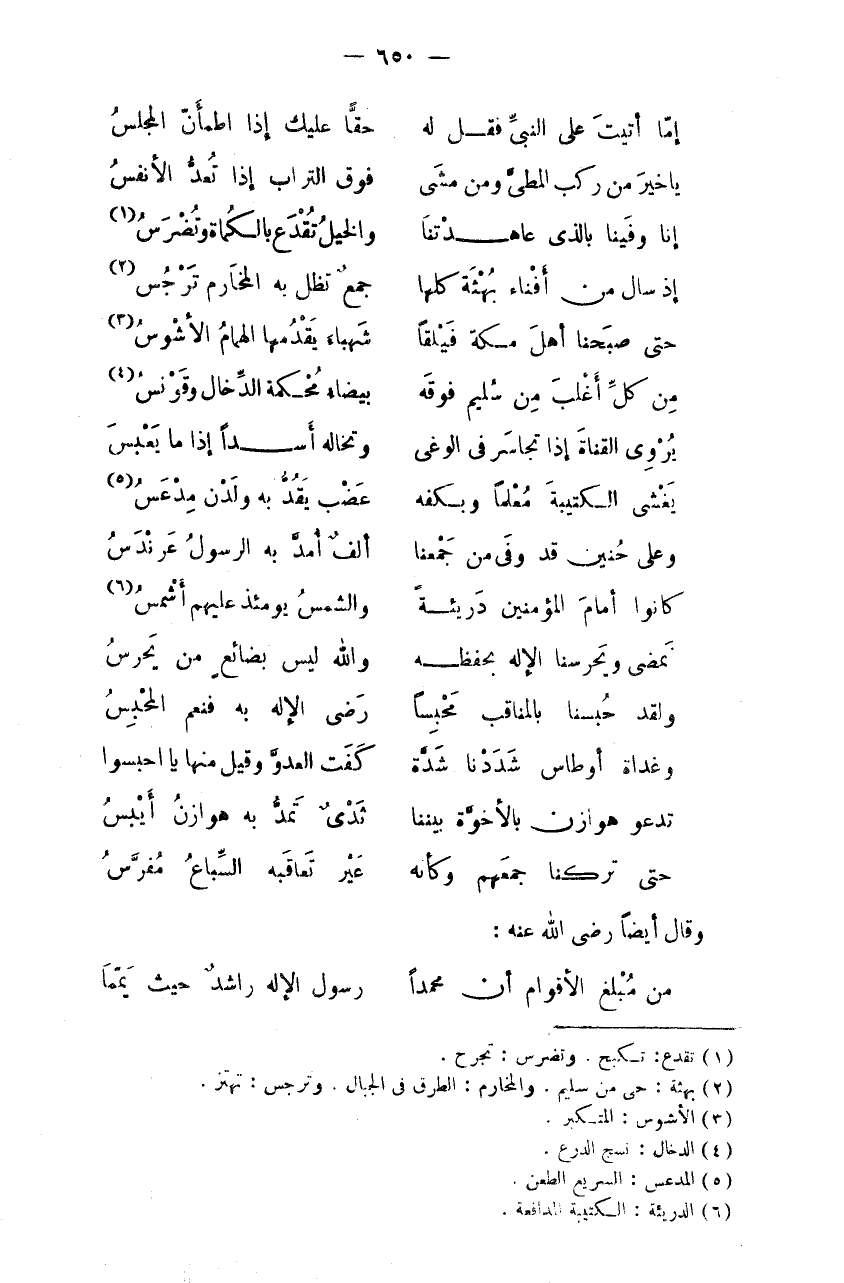 — ٦٥٠ —
إمّا أتيتَ على النبيِّ فقـل له حقًّا عليك إذا اطمأَنّ المجلسُ
ياخيرَ من ركب المطىَّ ومن مشَى فوق التراب إذا تُعدُّ الأنفسُ
إنا وفَينا بالذى عاهـدْتنَا والخيلُ تُقْدَع بالكُماة وتُضْرَسُ (١)
إذ سال من أَفْناء بُهْثَة كلها جمعٌ تظل به المخَارم تَرْجُس (٢)
حتى صبَحنا أهلَ مكة فَيْلقاً شَهباء يَقْدُمها الهمامُ الأشْوسُ (٣)
مِن كلِّ أَغْلبَ مِن سُليم فوقَه بيضاء مُحْكمة الدِّخال وقَوْنسُ (٤)
يُرْوِى القناةَ إذا تجاسَر فى الوغى وتخاله أَسـداً إذا ما يَعْبسَ
يَغْشى الكتيبةَ مُعْلماً وبكفه عَضْب يَقُدُّ به ولَدْن مِدْعَسُ (٥)
وعلى حُنين قد وفَى من جَمْعنا ألفٌ أُمدَّ به الرسولُ عَرندَسُ
كانوا أمامَ المؤمنين دَريئـةً والشمسُ يومئذ عليهم أَشْمسُ (٦)
نَمضى ويَحرسنا الإله بحفظـه والله ليس بضائعٍ من يَحرسُ
ولقد حُبسنا بالمناقب مَحْبِساً رَضى الإله به فنعم المحْبِسُ
وغداة أوطاس شَدَدْنا شَدَّة كَفَت العدوَّ وقيل منها يا احبسوا
تدعو هوازن بالأخوَّة بيننا ثَدْىٌ تَمدُّ به هوازنُ أَيْبسُ
حتى تركنا جمعَهم وكأنه عَيْر تَعاقَبه السِّباعُ مُفرَّسُ
وقال أيضاً رضى الله عنه :
من مُبْلغ الأقوام أن محمداً رسول الإله راشدٌ حيث يَمّمَا
(١) تقدع: تكبح . وتضرس : تجرح .
(٢) بهثة : حى من سليم . والمخارم : الطرق فى الجبال . وترجس : تهتز .
(٣) الأشوس : المتكبر .
(٤) الدخال : نسج الدرع .
(٥) المدعس : السريع الطعن .
(٦) الدريئة : الكتيبة المدافعة .